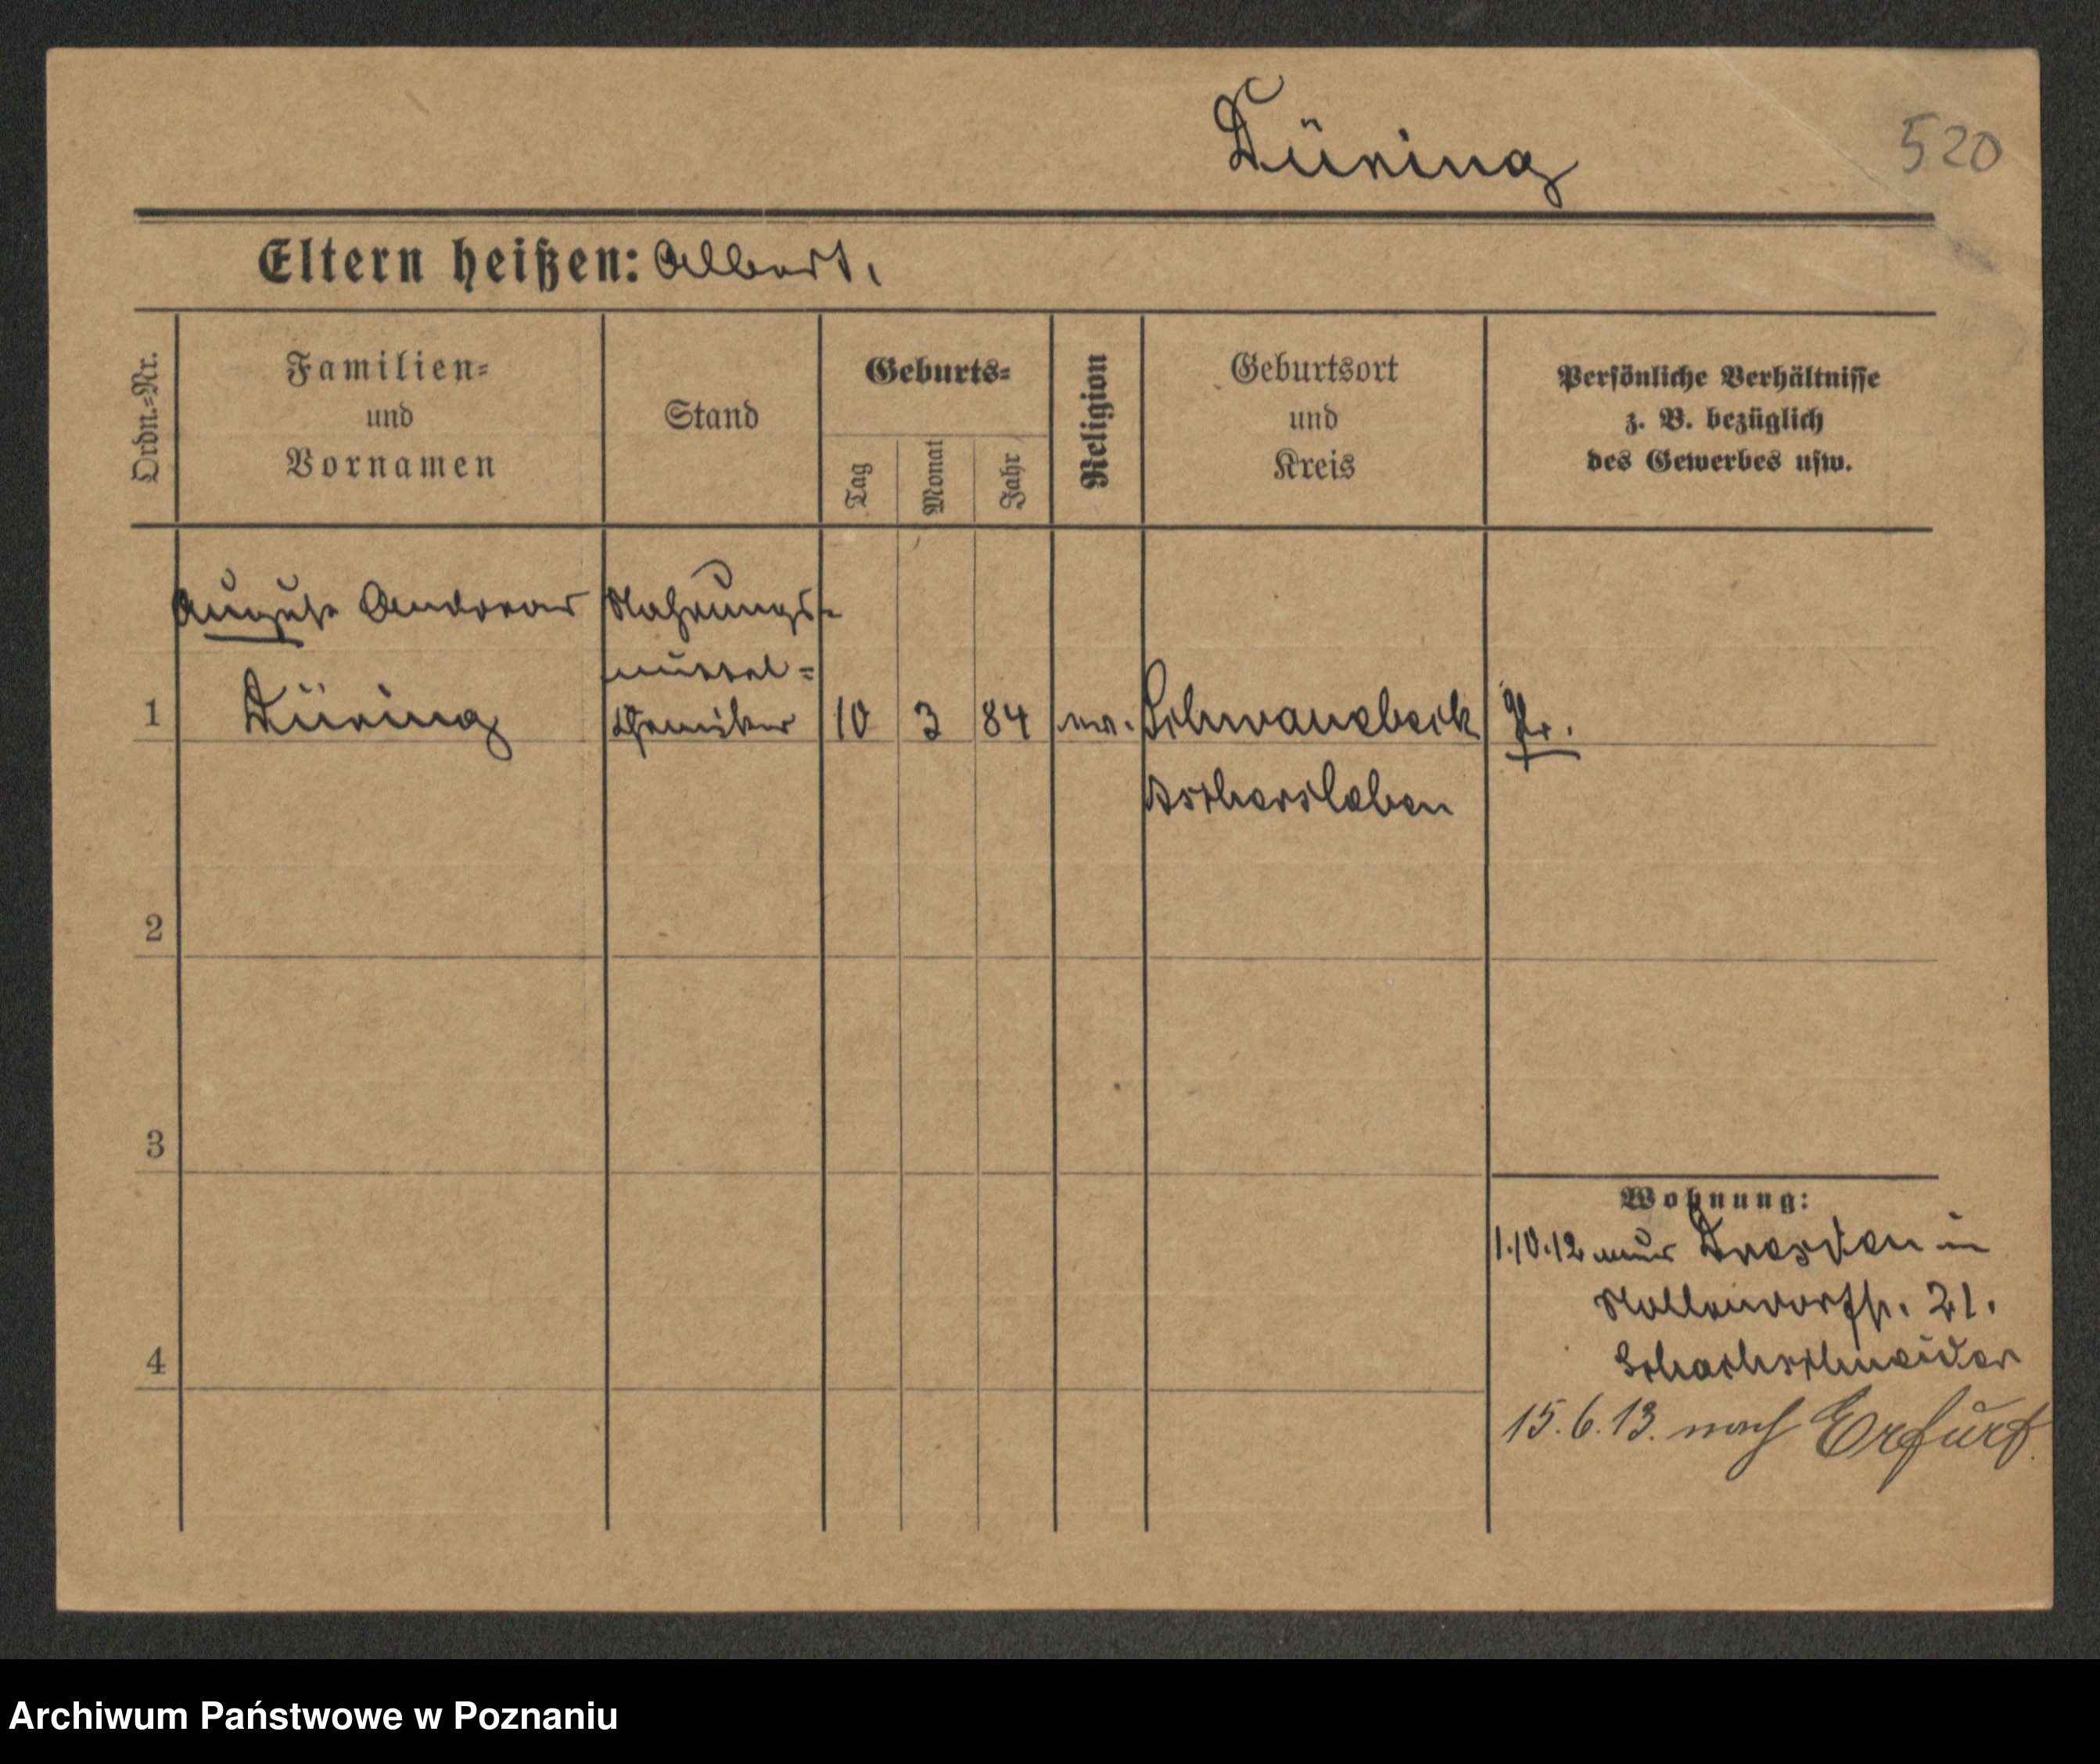 Düring
520
Eltern heißen: Albert,
Ordn.=Nr.
Familien=
und
Vornamen
Stand
Geburts=
Tag
Monat
Jahr
Religion
Geburtsort
und
Kreis
Persönliche Verhältnisse
z. B. bezüglich
des Gewerbes usw.
August Andreas Nahrungs-
mittel=
1 Düring Chemiker 10 3 84 ev. Schwanebeck Pr.
Aschersleben
2
3
Wohnung:
1.10.12 aus Dresden in
Nollendorfstr. 21.
4
15.6.13. nach Erfurt.
Archiwum Państwowe w Poznaniu